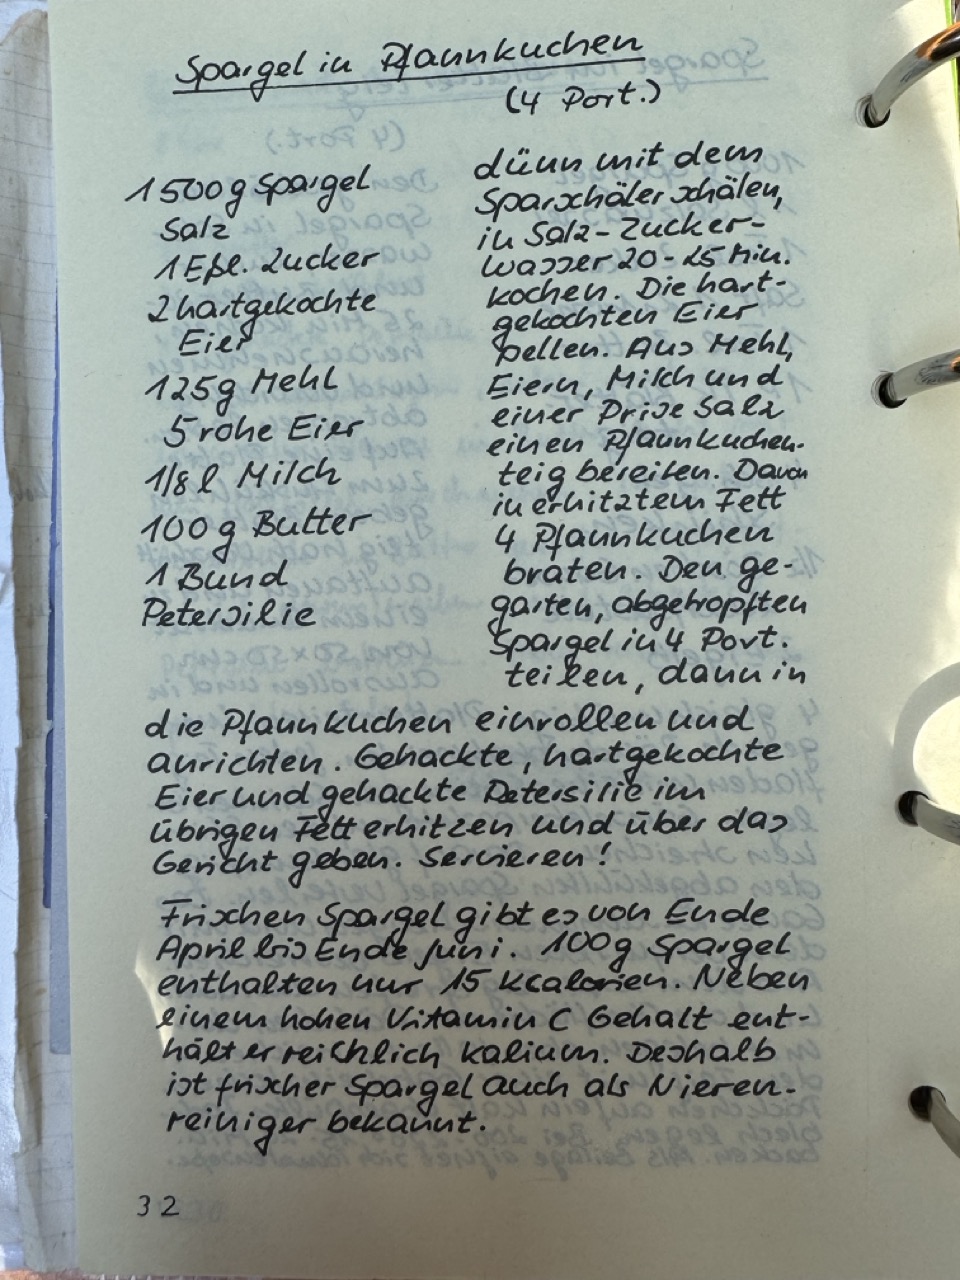 Spargel in Pfannkuchen
(4 Port.)
1500g Spargel
Salz
1 Eßl. Zucker
2 hartgekochte
Eier
125g Mehl
5 rohe Eier
1/8 l Milch
100g Butter
1 Bund
Petersilie
dünn mit dem
Sparschäler schälen,
in Salz-Zucker-
wasser 20-25 Min.
kochen. Die hart-
gekochten Eier
pellen. Aus Mehl,
Eiern, Milch und
einer Prise Salz
einen Pfannkuchen-
teig bereiten. Davon
in erhitztem Fett
4 Pfannkuchen
braten. Den ge-
garten, abgetropften
Spargel in 4 Port.
teilen, dann in
die Pfannkuchen einrollen und
anrichten. Gehackte, hartgekochte
Eier und gehackte Petersilie im
übrigen Fett erhitzen und über das
Gericht geben. Servieren!
Frischen Spargel gibt es von Ende
April bis Ende Juni. 100g Spargel
enthalten nur 15 Kcalorien. Neben
einem hohen Vitamin C Gehalt ent-
hält er reichlich Kalium. Deshalb
ist frischer Spargel auch als Nieren-
reiniger bekannt.
32